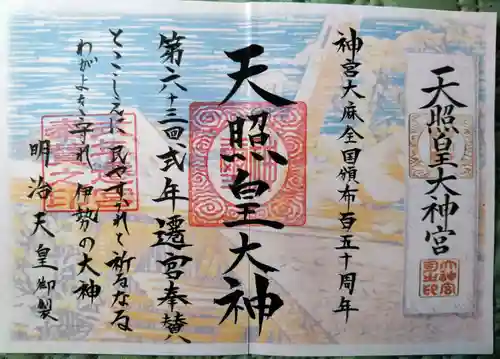 天照皇大神宮
神宮大麻全国頒布百五十周年
天照皇大神
第六十三回式年遷宮奉賛
とこしえに 民やすかれと祈るなる
わがよを守れ 伊勢の大神
明治天皇御製